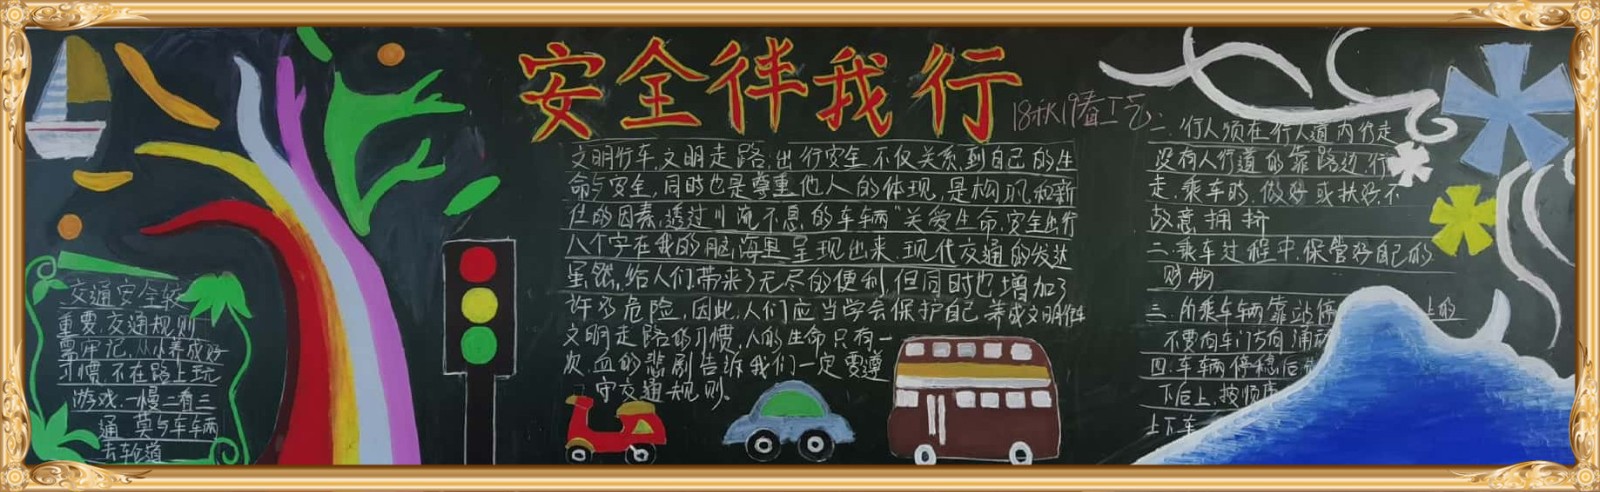 安全伴我行
交通安全很
重要,交通规则
需牢记,从小养成好
习惯,不在路上玩
游戏,一慢二看三
通 莫与车车辆
去车道
文明行车,文明走路,出行安全,不仅关系到自己的生
命与安全,同时也是尊重他人的体现,是构巩和新
住的因素,透过川淹不息的车车辆"关爱生命,安全出行
八个字在我的脑海里呈现出来,现代交通的发达
虽然,给人们带来了无尽的便利,但同时也增加了
许多危险,因此,人们应当学会保护自己,养成文明行车
文明走路的习惯,人的生命只有一
次,血的悲剧告诉我们一定要遵
守交通规则。
一.行人须在行人道内行走
没有人行道的靠路边行
走,乘车时,做好或扶好,不
故意拥挤
二.乘车过程中,保管好自己的
财物
三.所乘车辆靠站停 上的
不要向车门方向涌动
四.车辆停稳后
下后上,按顺序
上下车